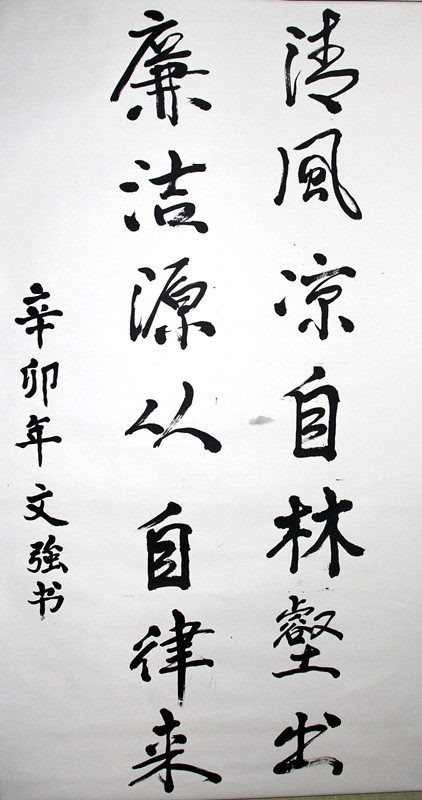 清風凉自林壑出
廉洁源从自律来
辛卯年文強书